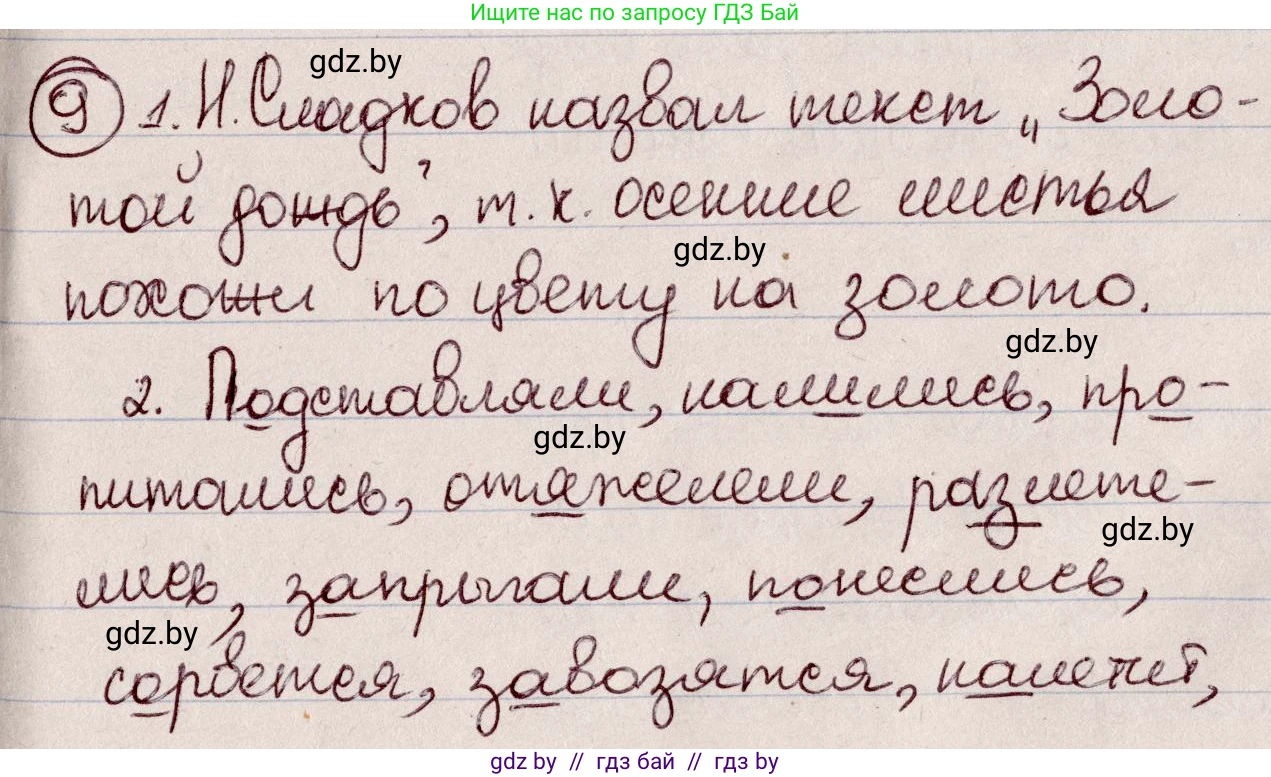 Ищите нас по запросу ГДЗ Бай
gdz.by
9 1. Н. Сладков назвал текст „Золо-
той дождь", т. к. осенние листья
gdz.by
похожи по цвету на золото.
gdz.by
2. Подставляли, налились, про-
gdz.by
питались, отяжелели, разлете-
gdz.by
лись, запрыгали, понеслись,
gdz.by
сорвется, завозятся, налетит,
gdz by // гдз бай // гдз by